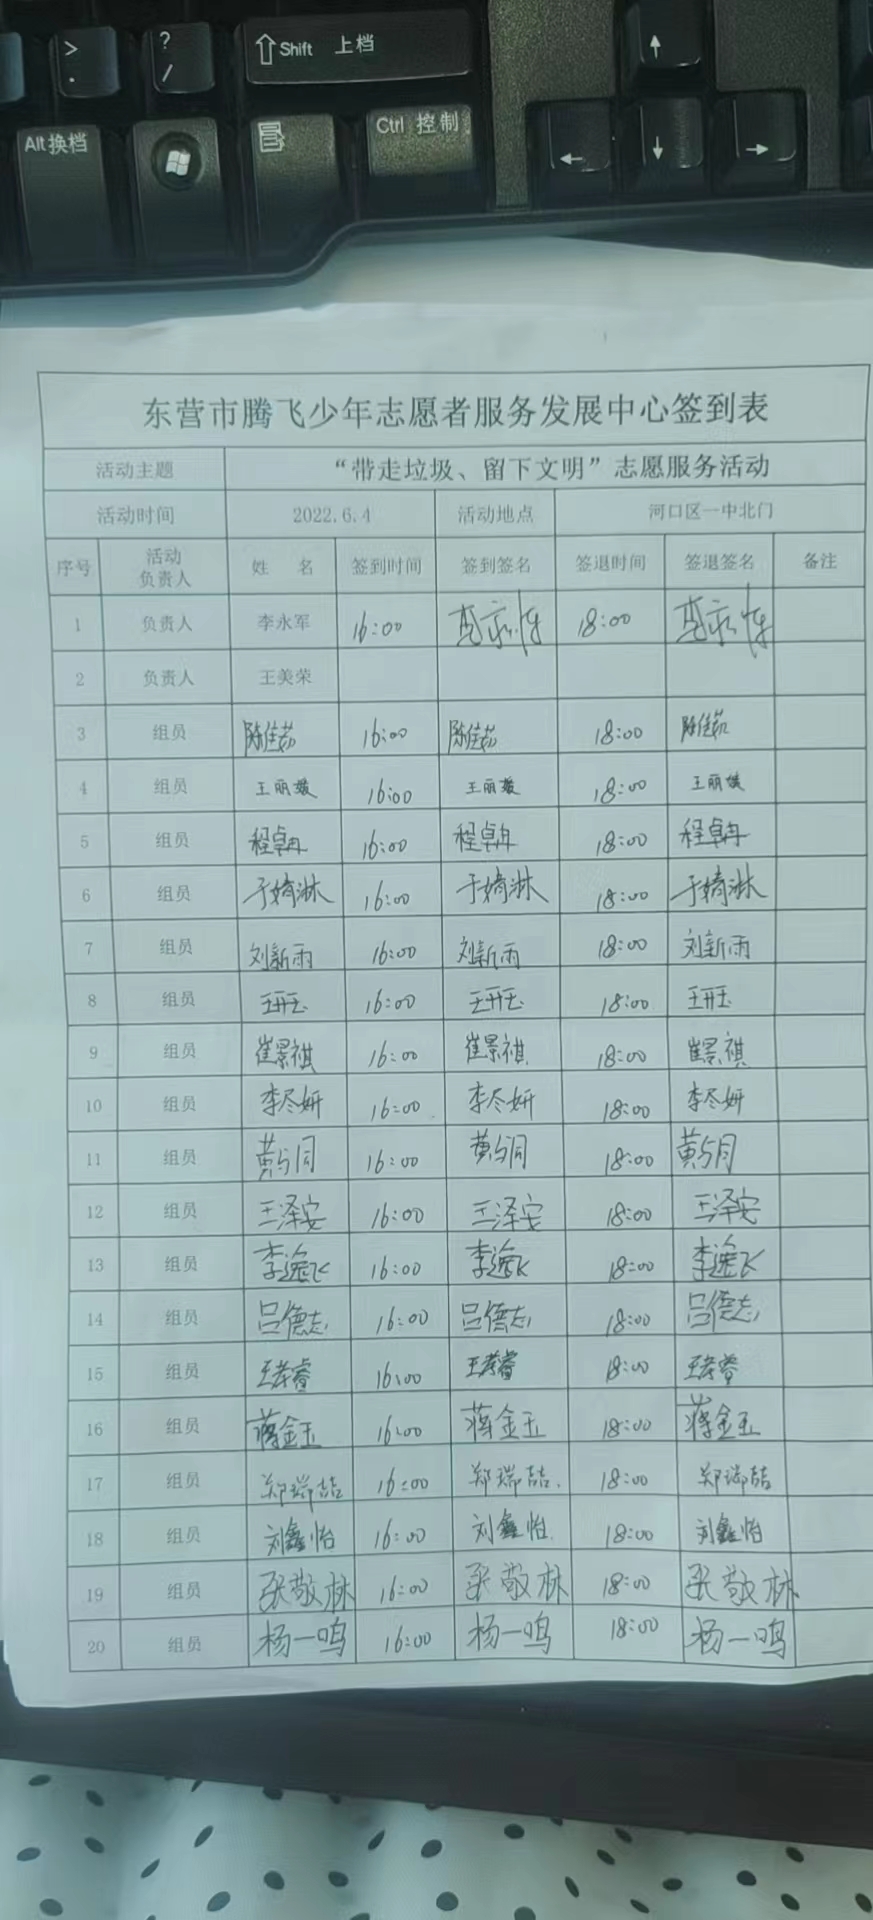 > ? ⇧Shift 上档 ↑
. /
Alt换档 Ctrl 控制 ← ↓ →
东营市腾飞少年志愿者服务发展中心签到表
活动主题 “带走垃圾、留下文明”志愿服务活动
活动时间 2022.6.4 活动地点 河口区一中北门
序号 活动负责人 姓 名 签到时间 签到签名 签退时间 签退签名 备注
1 负责人 李永军 16:00 18:00
2 负责人 王美荣
3 组员 陈佳茹 16:00 陈佳茹 18:00 陈佳茹
4 组员 王丽媛 16:00 王丽媛 18:00 王丽媛
5 组员 程卓冉 16:00 程卓冉 18:00 程卓冉
6 组员 于婧淋 16:00 于婧淋 18:00 于婧淋
7 组员 刘新雨 16:00 刘新雨 18:00 刘新雨
8 组员 16:00 18:00
9 组员 崔景祺 16:00 崔景祺 18:00 崔景祺
10 组员 李尽妍 16:00 李尽妍 18:00 李尽妍
11 组员 黄与同 16:00 黄与同 18:00 黄与同
12 组员 王泽安 16:00 王泽安 18:00 王泽安
13 组员 李逸飞 16:00 李逸飞 18:00 李逸飞
14 组员 吕德志 16:00 吕德志 18:00 吕德志
15 组员 王孝睿 16:00 王孝睿 18:00 王孝睿
16 组员 蒋金玉 16:00 蒋金玉 18:00 蒋金玉
17 组员 郑瑞喆 16:00 郑瑞喆 18:00 郑瑞喆
18 组员 刘鑫怡 16:00 刘鑫怡 18:00 刘鑫怡
19 组员 张敬林 16:00 张敬林 18:00 张敬林
20 组员 杨一鸣 16:00 杨一鸣 18:00 杨一鸣